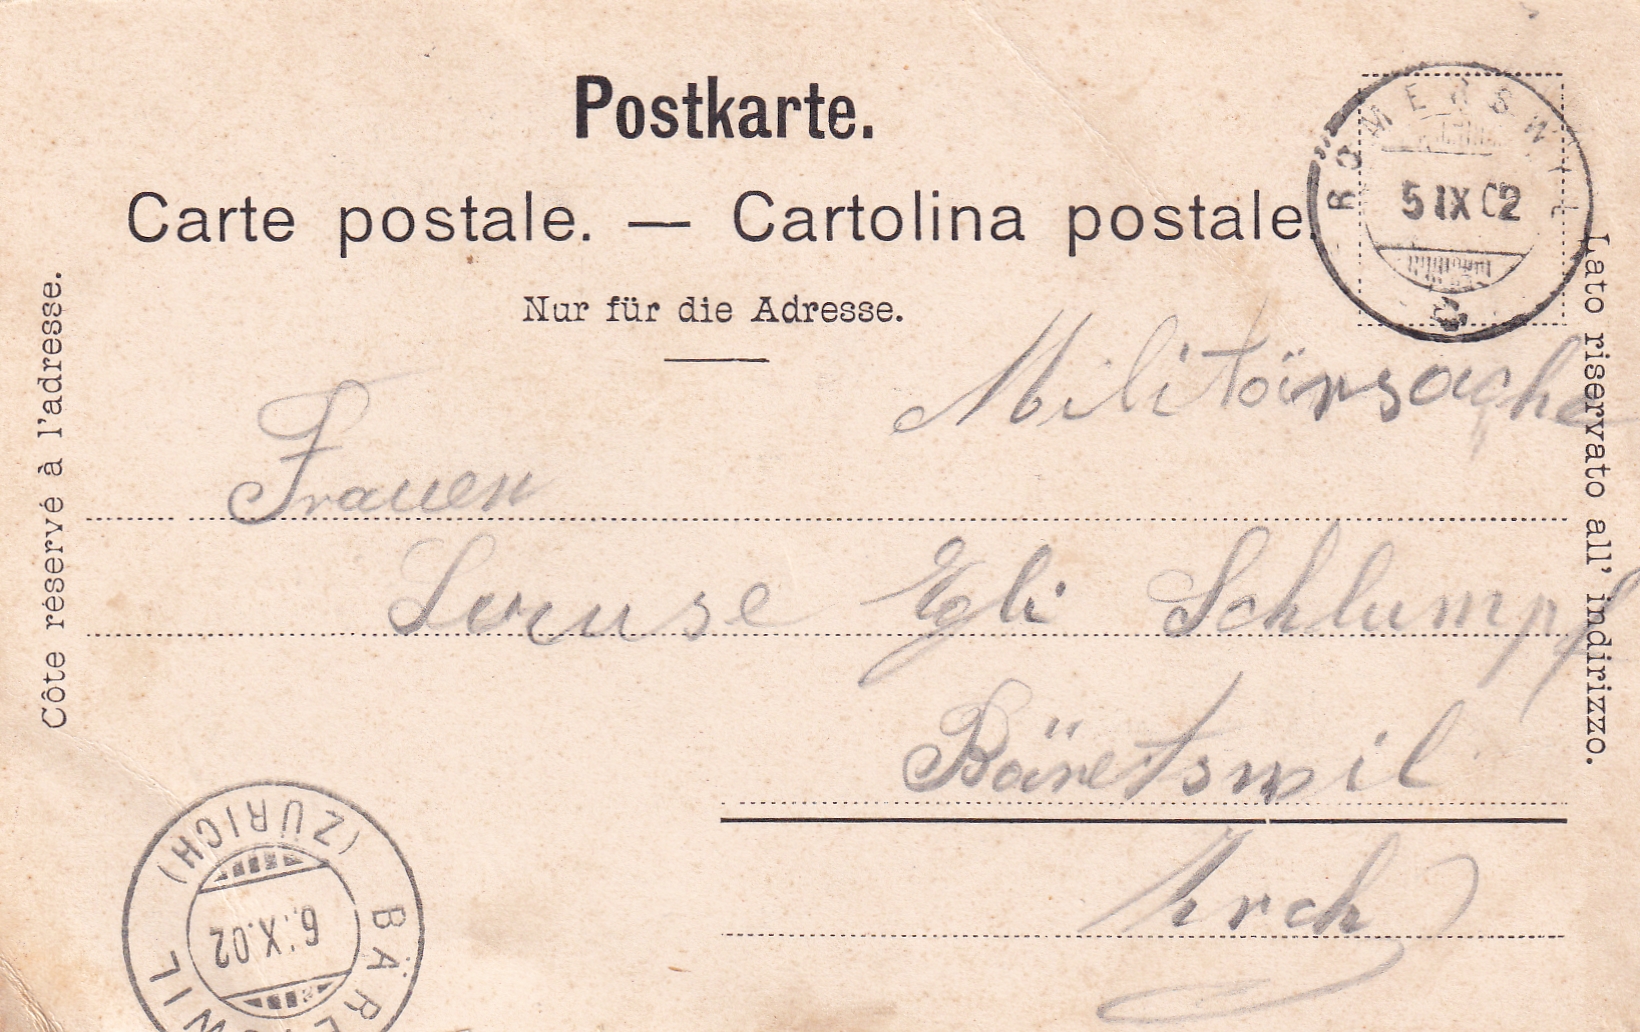 Postkarte.
Carte postale. — Cartolina postale.
Nur für die Adresse.
Côté réservé à l'adresse.
Lato riservato all' indirizzo.
RÖMERSWYL
5 IX 02
Militärsache
Frauen
Louise Egli Schlumpf
Bäretswil
BÄRETSWIL
(ZÜRICH)
6. X.02